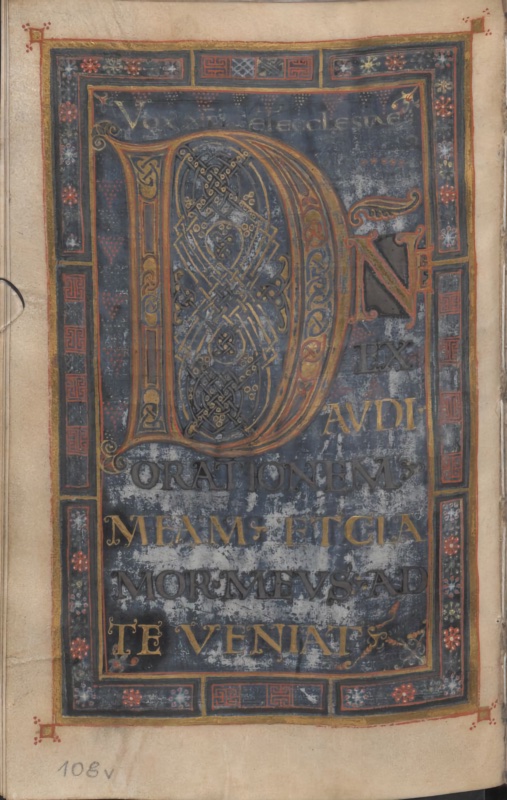 VOX ETECCLESIAE
D
N
EX
AVDI
ORATIONEM
MEAM ETCLA
MOR MEVS AD
TE VENIAT
108v